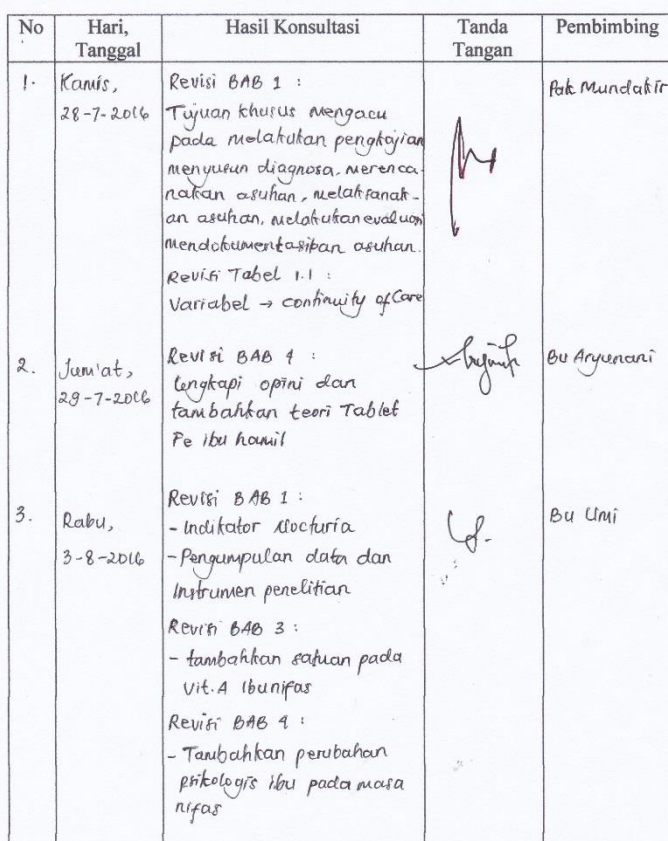 No Hari, Tanggal Hasil Konsultasi Tanda Tangan Pembimbing
1. Kamis, 28-7-2016
Revisi BAB 1 :
Tujuan khusus mengacu
pada melakukan pengkajian
menyusun diagnosa, merenca-
nakan asuhan, melaksanak-
an asuhan, melakukan evaluasi
mendokumentasikan asuhan.
Revisi Tabel 1.1 :
Variabel → continuity of Care
Pak Mundakir
2. Jum'at, 29-7-2016
Revisi BAB 4 :
lengkapi opini dan
tambahkan teori Tablet
Fe ibu hamil
Bu Aryunani
3. Rabu, 3-8-2016
Revisi BAB 1 :
- Indikator Nocturia
- Pengumpulan data dan
Instrumen penelitian
Revisi BAB 3 :
- tambahkan satuan pada
Vit. A Ibu nifas
Revisi BAB 4 :
- Tambahkan perubahan
psikologis ibu pada masa
nifas
Bu Umi